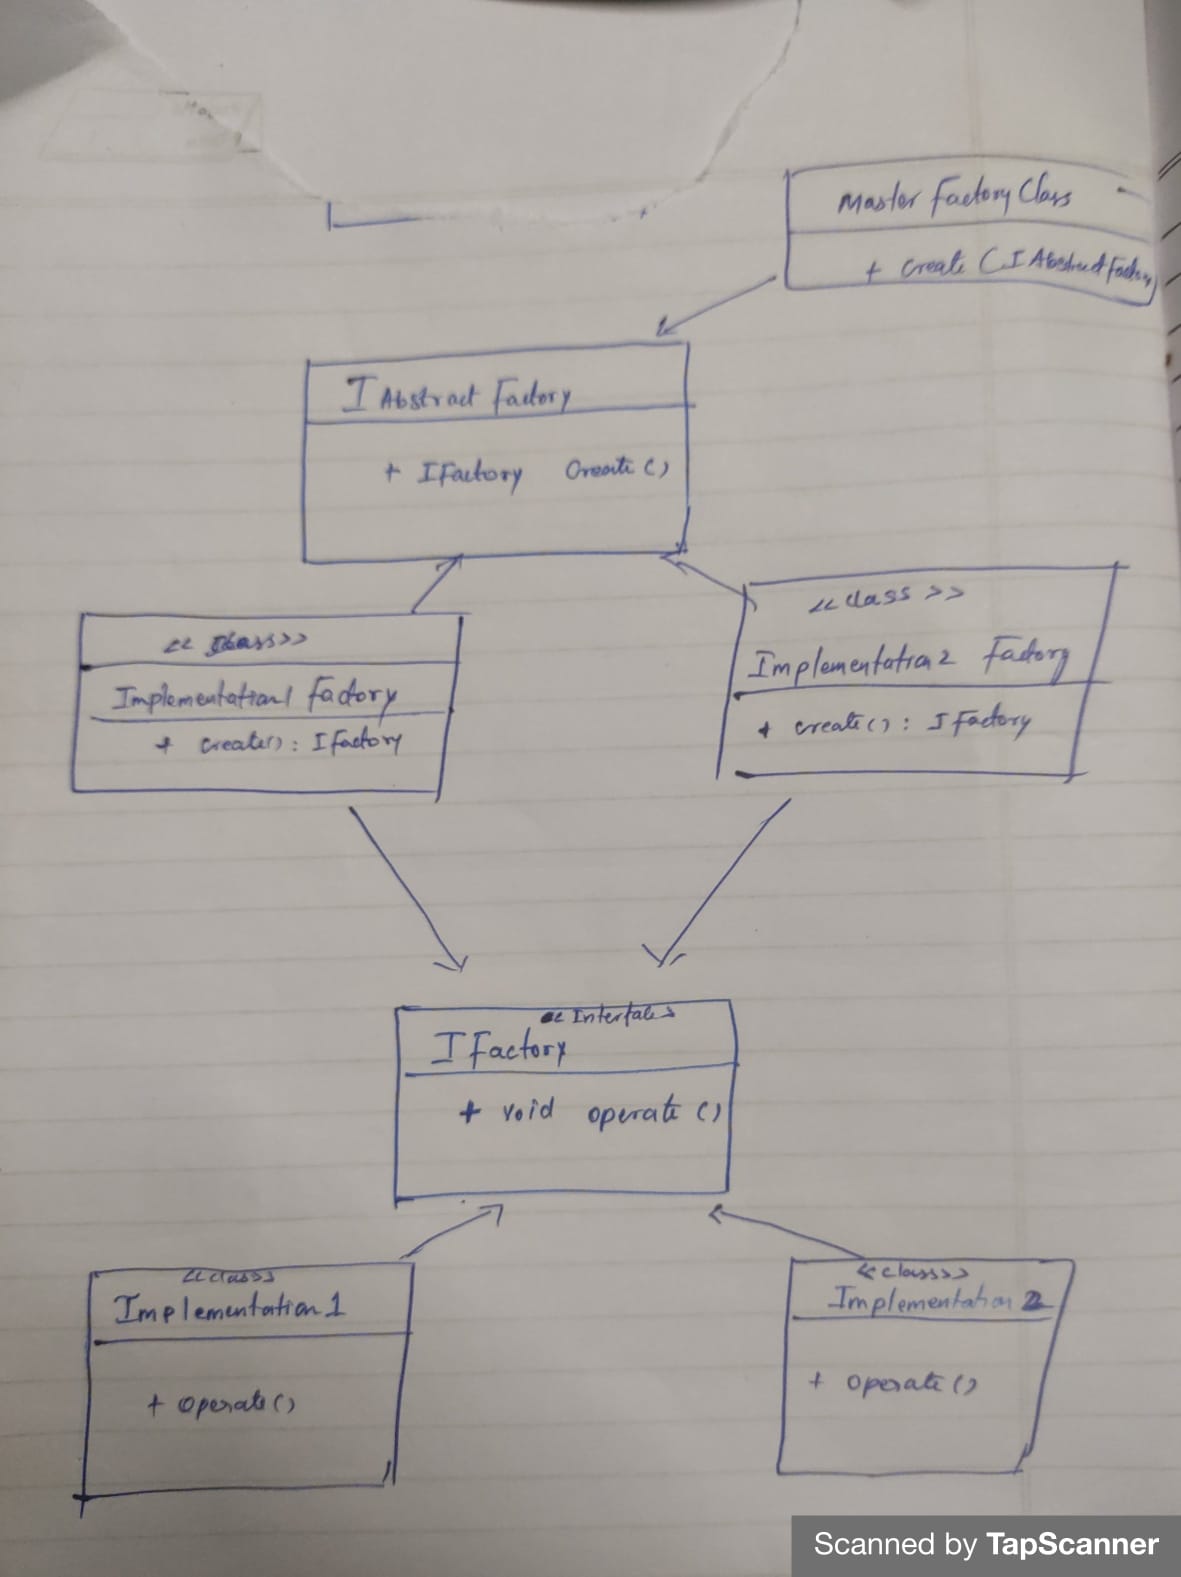 Master Factory Class
+ Create (IAbstractFactory)
I Abstract Factory
+ IFactory Create()
<<class>>
Implementation1 Factory
+ create(): IFactory
<<class>>
Implementation2 Factory
+ create(): IFactory
<<Interface>
IFactory
+ void operate()
<<class>>
Implementation1
+ operate()
<<class>>>
Implementation 2
+ operate()
Scanned by TapScanner